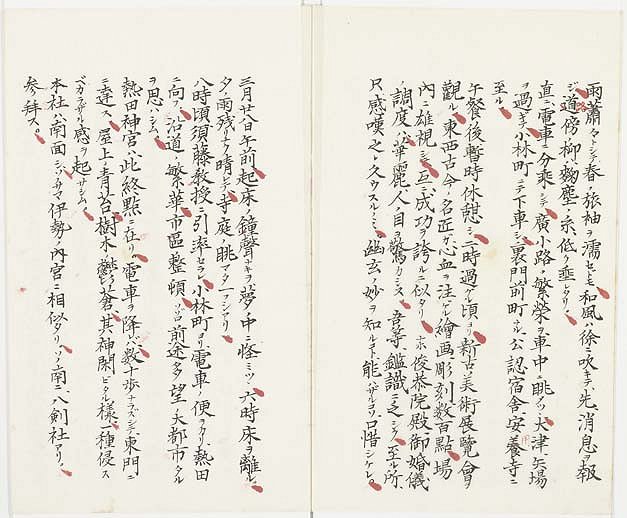 雨蕭々トシテ春ノ旅袖ヲ濡セトモ和風ハ徐ニ吹キテ先ヅ消息ヲ報
ジ道路傍ノ柳ハ麹塵ノ糸ヲ低ク垂レタリ
直ニ電車ニ分乗シテ廣小路ノ繁栄ヲ車中ニ眺メツヽ大津矢場
ヲ過ギ小林町ニテ下車シ裏門前町ナル公認宿舎安養寺ニ
至ル
午餐後暫時休憩シ二時過グル頃ヨリ新古美術展覧會ヲ
觀ル東西古今ノ名匠ガ心血ヲ注ゲル繪画彫刻数百點場
内ニ雄視シテ互ニ成功ヲ誇ルニ似タリ 俊恭院殿御婚儀
ノ調度ハ華麗人ノ目ヲ驚カシヌ吾等鑑識ニ乏シク至ル所
只感嘆之レ久ウスルノミ幽玄ノ妙ヲ知ル能ハザルコソ口惜シケレ
三月廿八日午前起床ノ鐘聲ナキヲ夢ノ中ニ怪ミツヽ六時床ヲ離ル
夕ノ雨残リナク晴レテ寺庭ノ眺マタ一フシアリ
八時頃須藤教授ニ引率セラレ小林町ヨリ電車ノ便ヲカリ熱田
ニ向フ沿道ノ繁華市區整頓 前途多望ノ大都市タル
ヲ思ハシム
熱田神宮ハ此終點ニ在リ電車ヲ降レバ数十歩ナラズシテ東門ニ
達ス屋上ノ青苔樹木ノ鬱蒼其神閑ビタル様一種侵ス
ベカラザル感ヲ起サシム
本社ハ南面シサマ伊勢ノ内宮ニ相似タリソノ南ニ八剣社アリ
参拜ス